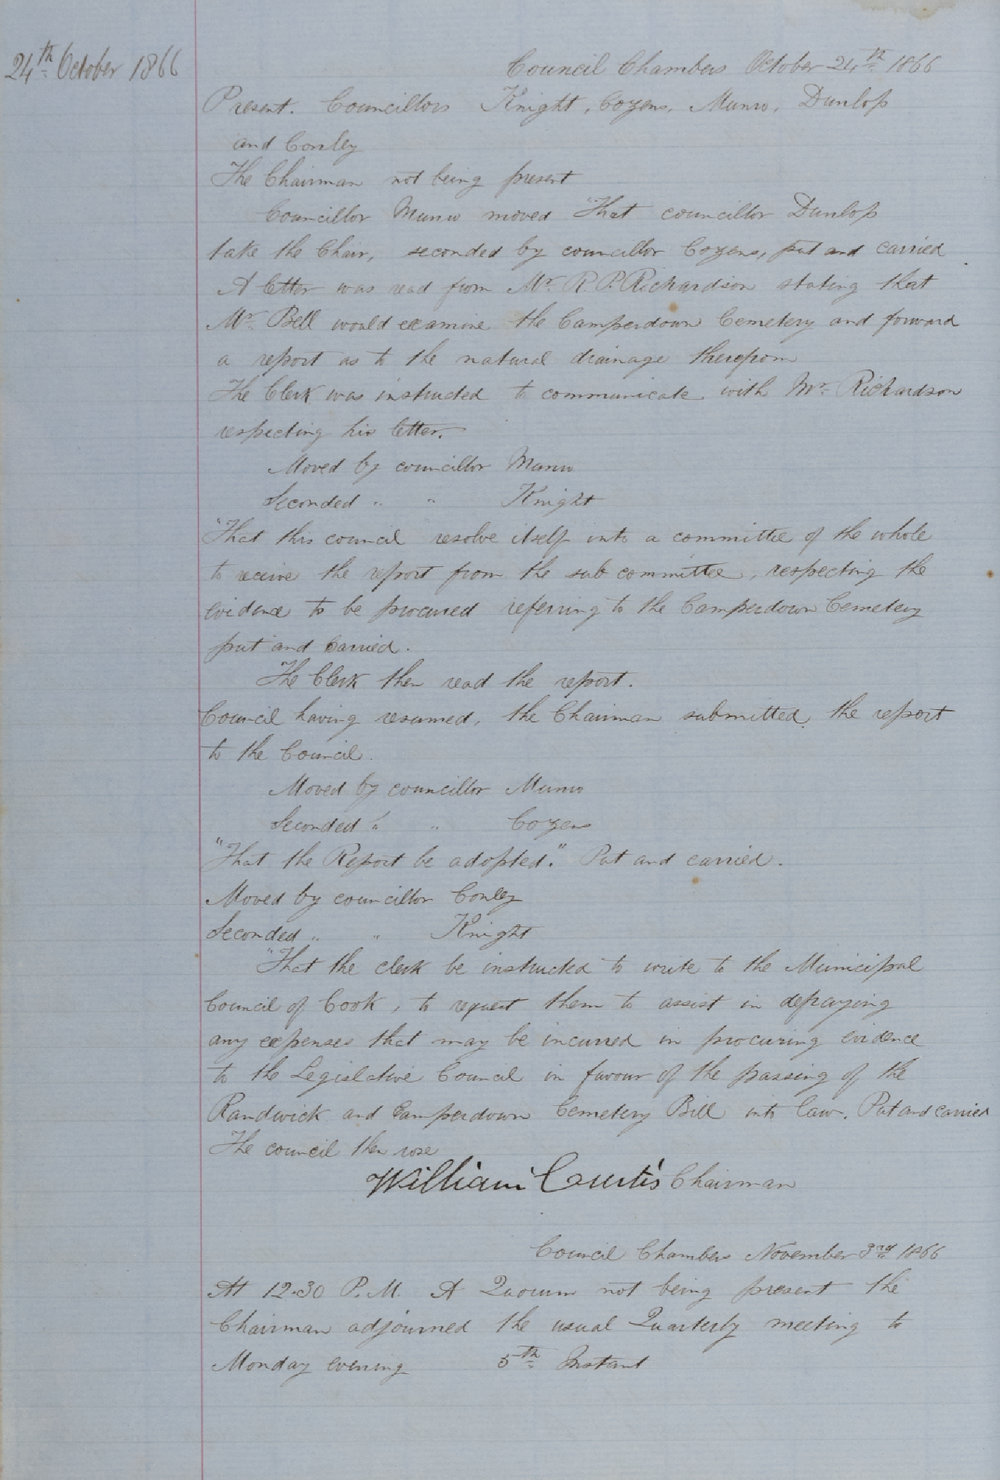 24th October 1866
Council Chambers October 24th 1866
Present. Councillors Knight, Cozens, Munro, Dunlop
and Conley
The Chairman not being present
Councillor Munro moved "That councillor Dunlop
take the Chair, seconded by councillor Cozens, put and carried
A letter was read from Mr. R. P. Richardson stating that
Mr. Bell would examine the Camperdown Cemetery and forward
a report as to the natural drainage therefrom
The Clerk was instructed to communicate with Mr. Richardson
respecting his letter.
Moved by councillor Munro
Seconded " " Knight
"That this council resolve itself into a committee of the whole
to receive the report from the sub committee, respecting the
evidence to be procured referring to the Camperdown Cemetery
put and Carried.
The Clerk then read the report.
Council having resumed, the Chairman submitted the report
to the Council.
Moved by councillor Munro
Seconded " " Cozens
"That the Report be adopted." Put and carried.
Moved by councillor Conley
Seconded " " Knight
"That the clerk be instructed to write to the Municipal
Council of Cook, to request them to assist in defraying
any expenses that may be incurred in procuring evidence
to the Legislative Council in favour of the passing of the
Randwick and Camperdown Cemetery Bill into law. Put and carried
The council then rose
William Curtis Chairman
Council Chambers November 3rd 1866
At 12.30 P.M. A Quorum not being present the
Chairman adjourned the usual Quarterly meeting to
Monday evening 5th Instant